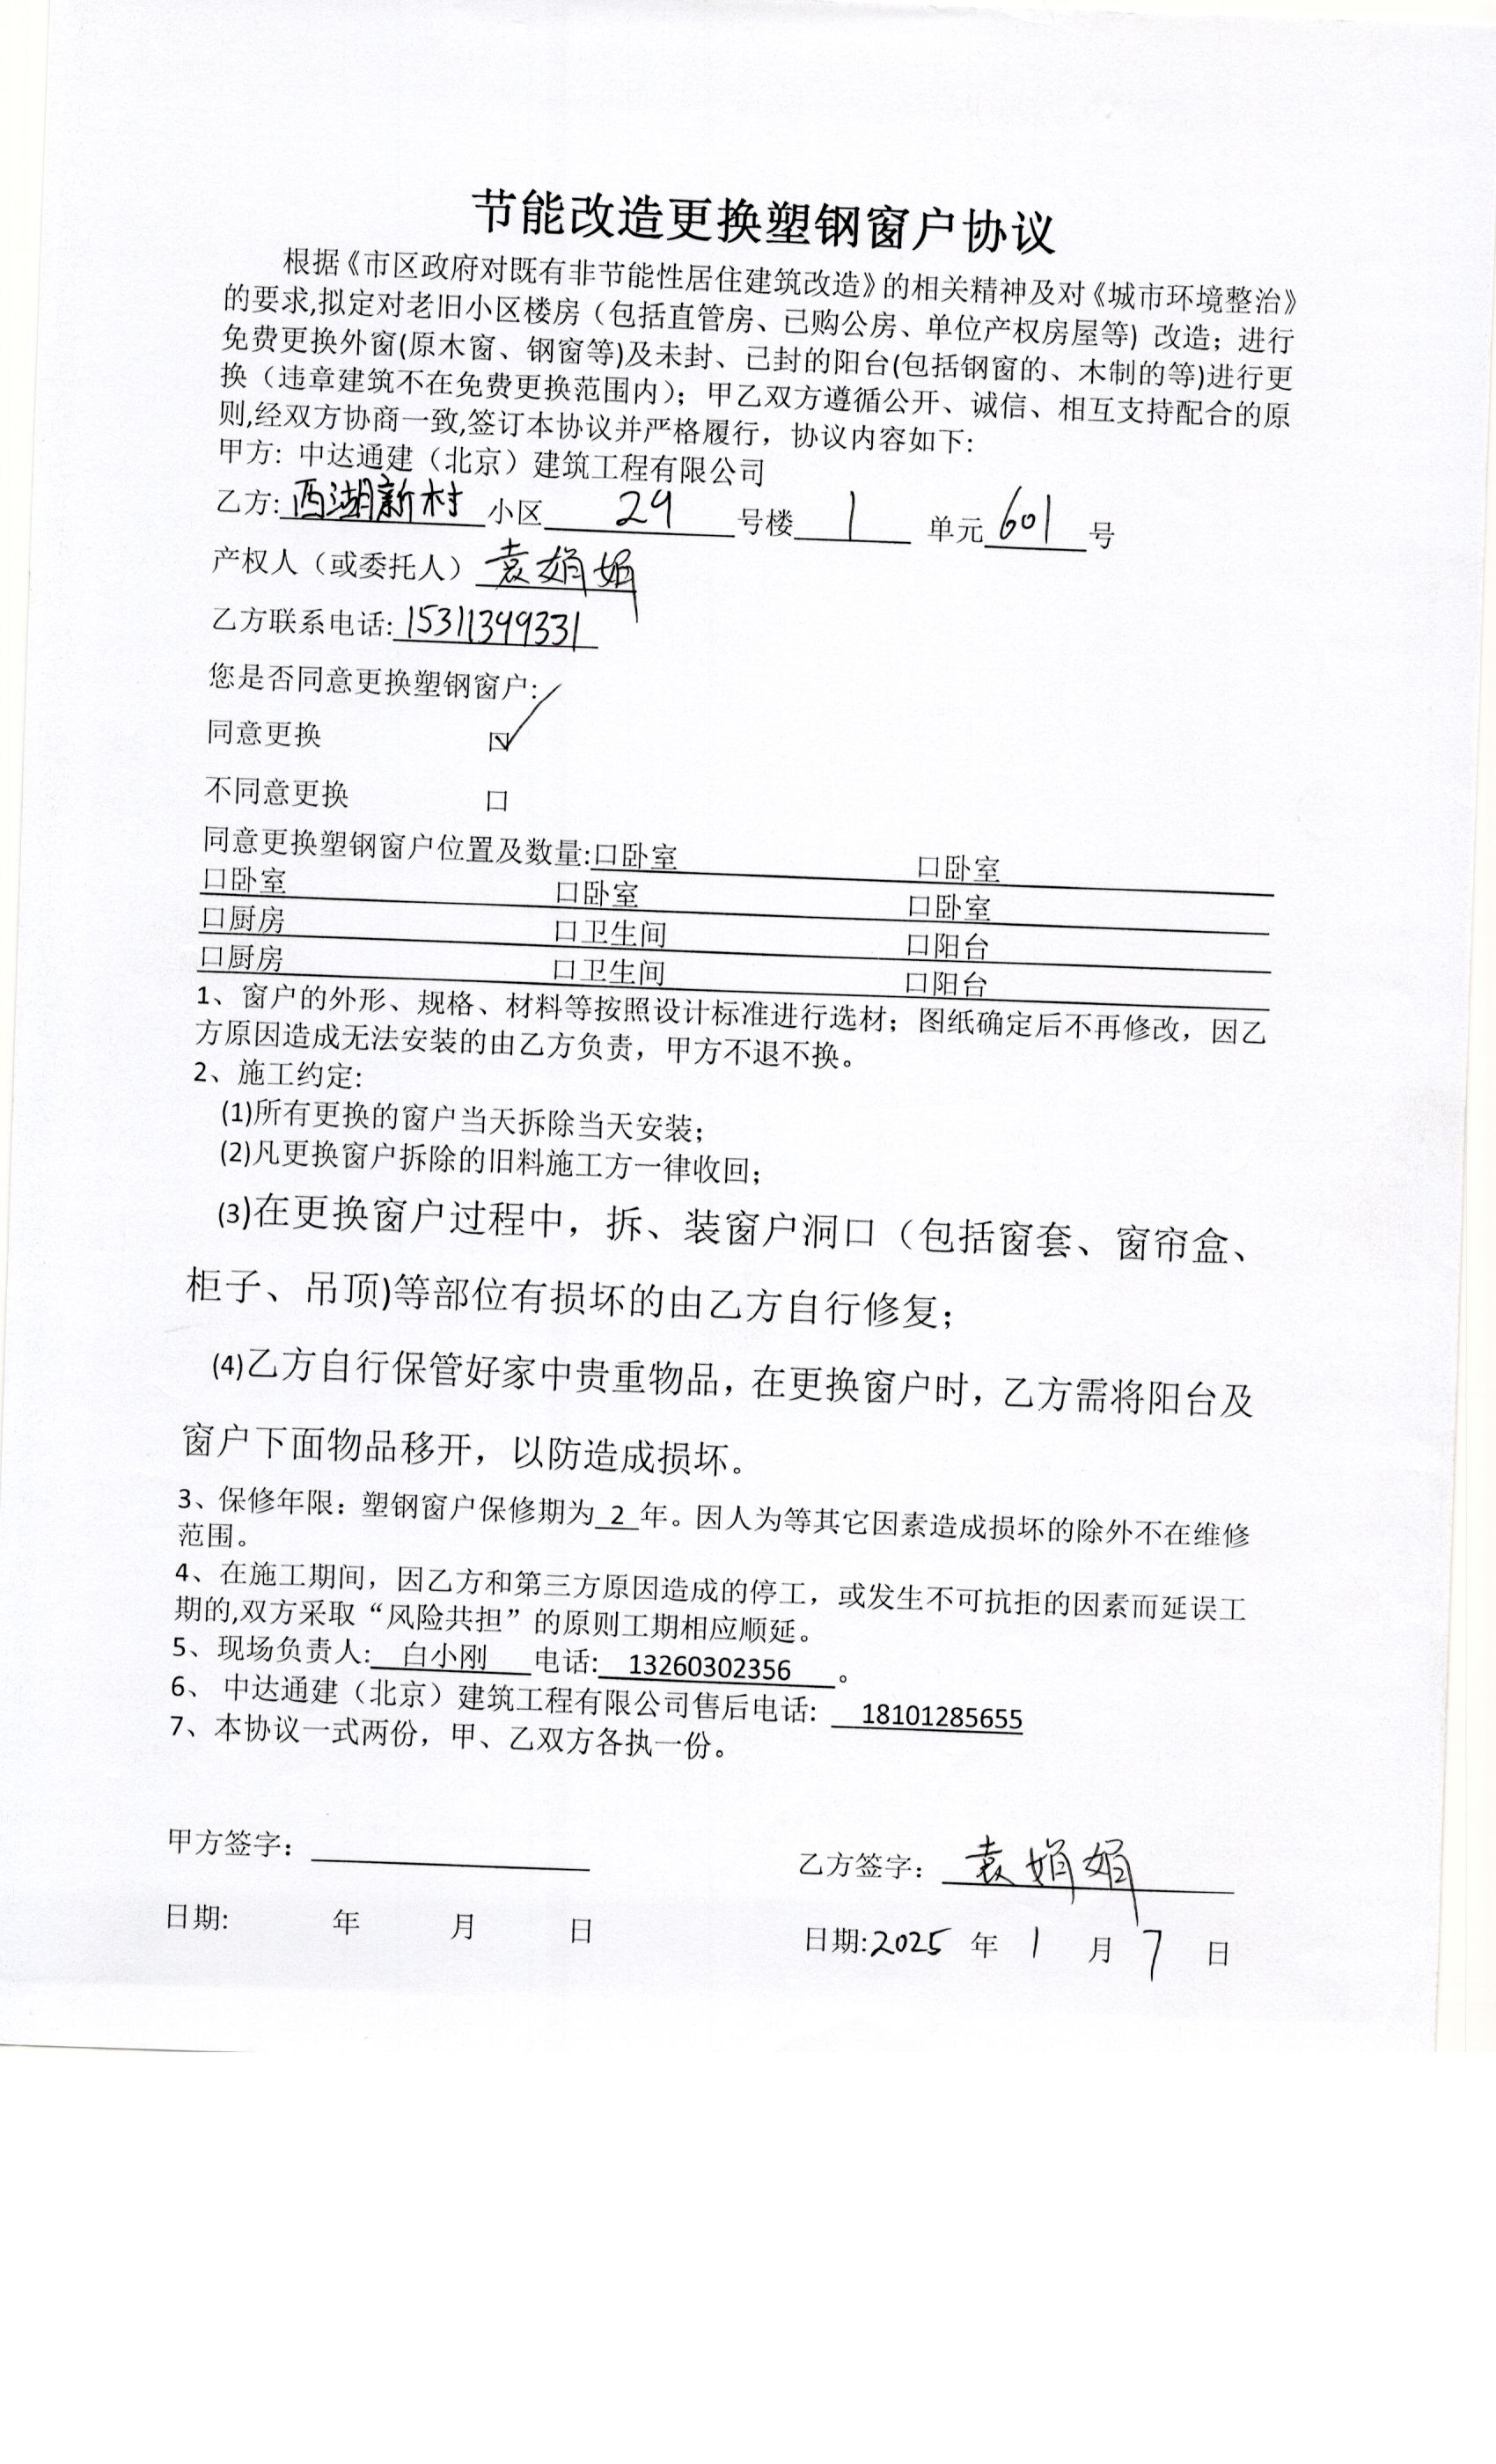 节能改造更换塑钢窗户协议
根据《市区政府对既有非节能性居住建筑改造》的相关精神及对《城市环境整治》
的要求,拟定对老旧小区楼房（包括直管房、已购公房、单位产权房屋等）改造；进行
免费更换外窗(原木窗、钢窗等)及未封、已封的阳台(包括钢窗的、木制的等)进行更
换（违章建筑不在免费更换范围内）；甲乙双方遵循公开、诚信、相互支持配合的原
则,经双方协商一致,签订本协议并严格履行，协议内容如下:
甲方: 中达通建（北京）建筑工程有限公司
乙方: 西湖新村 小区 29 号楼 1 单元 601 号
产权人（或委托人） 袁娟娟
乙方联系电话: 15311399331
您是否同意更换塑钢窗户:
同意更换 ☑
不同意更换 口
同意更换塑钢窗户位置及数量:口卧室 口卧室
口卧室 口卧室 口卧室
口厨房 口卫生间 口阳台
口厨房 口卫生间 口阳台
1、窗户的外形、规格、材料等按照设计标准进行选材；图纸确定后不再修改，因乙
方原因造成无法安装的由乙方负责，甲方不退不换。
2、施工约定:
(1)所有更换的窗户当天拆除当天安装;
(2)凡更换窗户拆除的旧料施工方一律收回;
(3)在更换窗户过程中，拆、装窗户洞口（包括窗套、窗帘盒、
柜子、吊顶)等部位有损坏的由乙方自行修复;
(4)乙方自行保管好家中贵重物品，在更换窗户时，乙方需将阳台及
窗户下面物品移开，以防造成损坏。
3、保修年限：塑钢窗户保修期为 2 年。因人为等其它因素造成损坏的除外不在维修
范围。
4、在施工期间，因乙方和第三方原因造成的停工，或发生不可抗拒的因素而延误工
期的,双方采取“风险共担”的原则工期相应顺延。
5、现场负责人: 白小刚 电话: 13260302356 。
6、 中达通建（北京）建筑工程有限公司售后电话: 18101285655
7、本协议一式两份，甲、乙双方各执一份。
甲方签字： 乙方签字： 袁娟娟
日期: 年 月 日 日期:2025 年 1 月 7 日